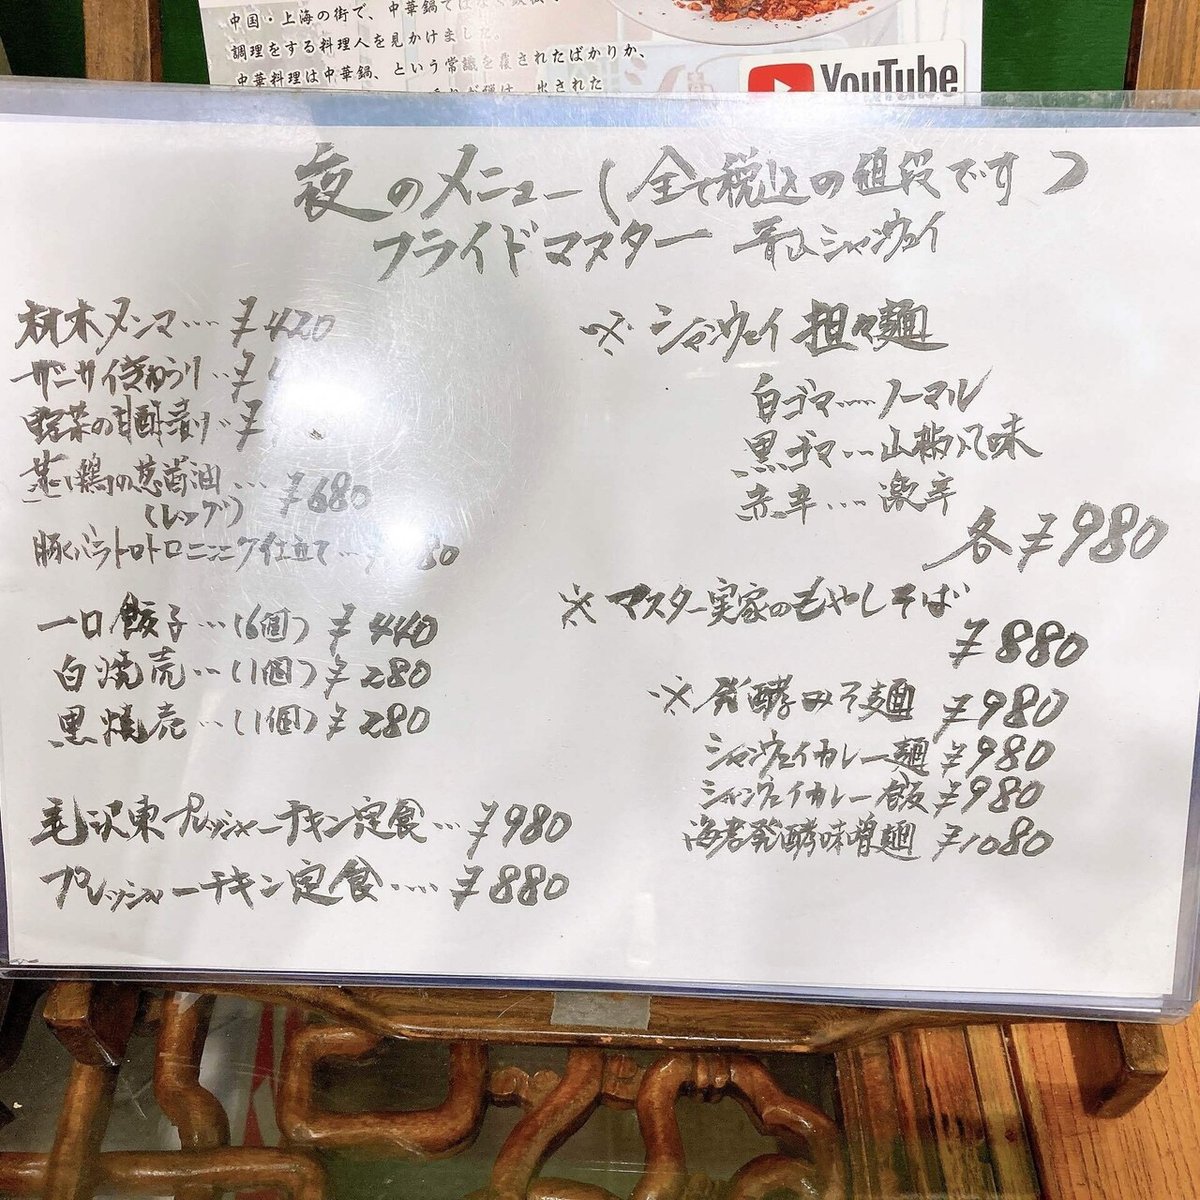 中国・上海の街で、中華鍋ではなく
調理をする料理人を見かけました。
中華料理は中華鍋、という常識を覆されたばかりか、
出された
YouTube
夜のメニュー(全て税込の値段です)
フライドマスター 青山シャンウェイ
材木メンマ‥‥ ¥420
ザーサイ
野菜の甘酢漬け‥ ¥
蒸し鶏の葱醤油‥‥ ¥680
(レッグ)
豚バラトロトロニンニク仕立て‥ 80
一口餃子‥‥(6個) ¥440
白焼売‥‥(1個) ¥280
黒焼売‥‥(1個) ¥280
毛沢東プレッシャーチキン定食‥‥ ¥980
プレッシャーチキン定食‥‥ ¥880
※ シャンウェイ担々麺
白ゴマ‥‥ノーマル
黒ゴマ‥‥山椒入味
赤辛‥‥激辛
各¥980
※マスター実家のもやしそば
¥880
※発酵みそ麺 ¥980
シャンウェイカレー麺 ¥980
シャンウェイカレー飯 ¥980
海老発酵味噌麺 ¥1080